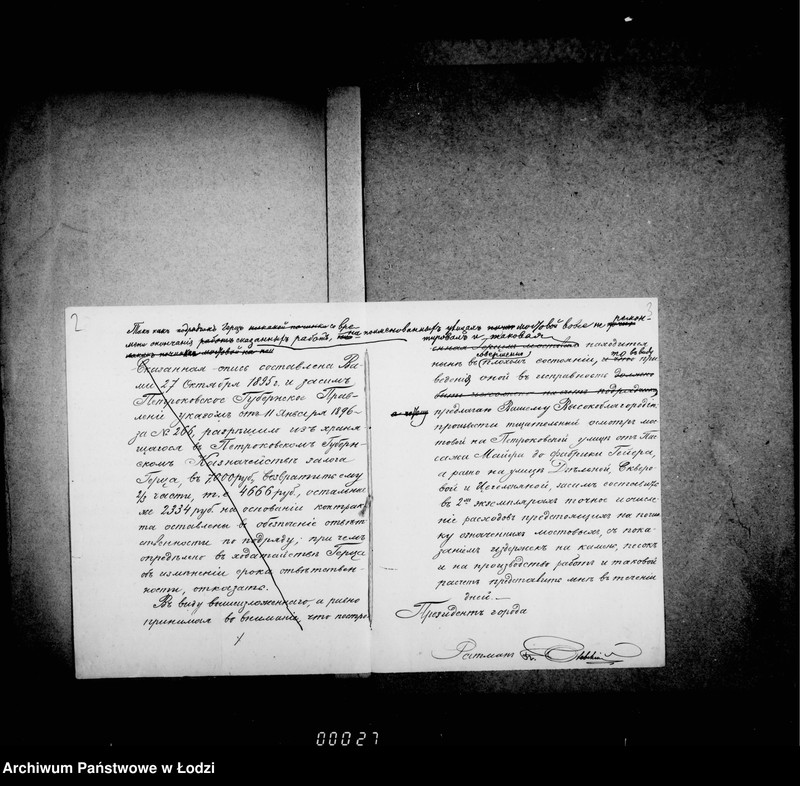 2
Такъ какъ подрядчикъ Герцъ никакой починки со вре-
мени окончанія работъ сказанныхъ работъ, на поименованныхъ улицахъ мостовой вовсе не ремон-
тировалъ и таковая
Сказанная опись составлена Ва-
ми 27 Октября 1895 г. и засимъ
Петроковское Губернское Прав-
леніе указомъ отъ 11 Января 1896
за № 266, разрѣшило изъ храня-
щагося въ Петроковскомъ Губерн-
скомъ Казначействѣ залога
Герца, въ 7000 руб. возвратить ему
2/3 части, т. е. 4666 руб., остальные
же 2334 руб. на основаніи контрак-
та оставлены въ обезпеченіе отвѣт-
ственности по подряду; при чемъ
опредѣлено въ ходатайствѣ Герца
объ измѣненіи срока отвѣтствен-
ности, отказать.
Въ виду вышеизложеннаго, а равно
принимая во вниманіе, что постро-
3
енная Герцомъ мостовая находится
нынѣ въ совершенно плохомъ состояніи, то въ виду при
веденія оной въ исправность должно
предлагаю Вашему Высокоблагородію
произвести тщательный осмотръ мос-
товой на Петроковской улицѣ отъ Пас
сажа Мейера до фабрики Гейера,
а равно на улицахъ Дѣльной, Скверо-
вой и Цегельняной, засимъ составить
въ 2хъ экземплярахъ точное исчисле-
ніе расходовъ предстоящихъ на почин
ку означенныхъ мостовыхъ, съ пока-
заніемъ издержекъ на камни, песокъ
и на производство работъ и таковой
расчетъ представить мнѣ въ теченіи
дней.
Президентъ города
Ратманъ
00027
Archiwum Państwowe w Łodzi